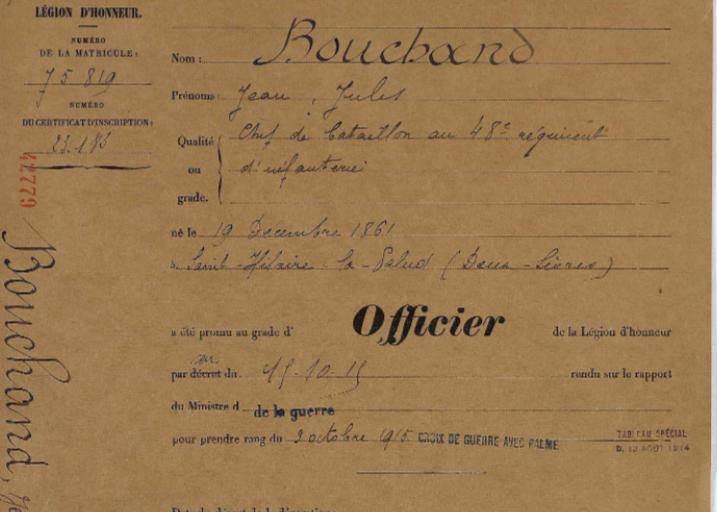 LÉGION D'HONNEUR.
NUMÉRO
DE LA MATRICULE:
75 819
NUMÉRO
DU CERTIFICAT D'INSCRIPTION:
23.183
42779
Bouchand,
Nom: Bouchand
Prénoms: Jean, Jules
Qualité ou grade. Chef de bataillon au 48e régiment
d'infanterie
né le 19 Décembre 1861
à Saint-Hilaire-la-Palud (Deux-Sèvres)
a été promu au grade d' Officier de la Légion d'honneur
par décret du rendu sur le rapport
du Ministre d de la guerre
pour prendre rang du 3 octobre 1915 CROIX DE GUERRE AVEC PALME
TABLEAU SPÉCIAL
D. 13 AOUT 1914